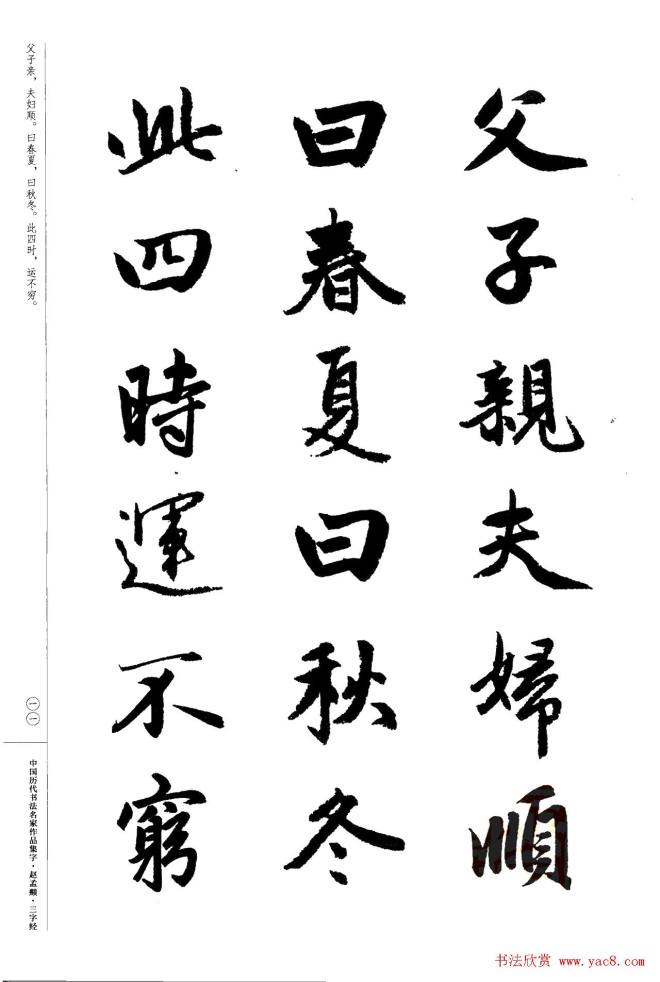 父子親夫婦順
曰春夏曰秋冬
此四時運不窮
父子亲，夫妇顺。曰春夏，曰秋冬。此四时，运不穷。
一一
中国历代书法名家作品集字·赵孟頫·三字经
书法欣赏 www.yac8.com